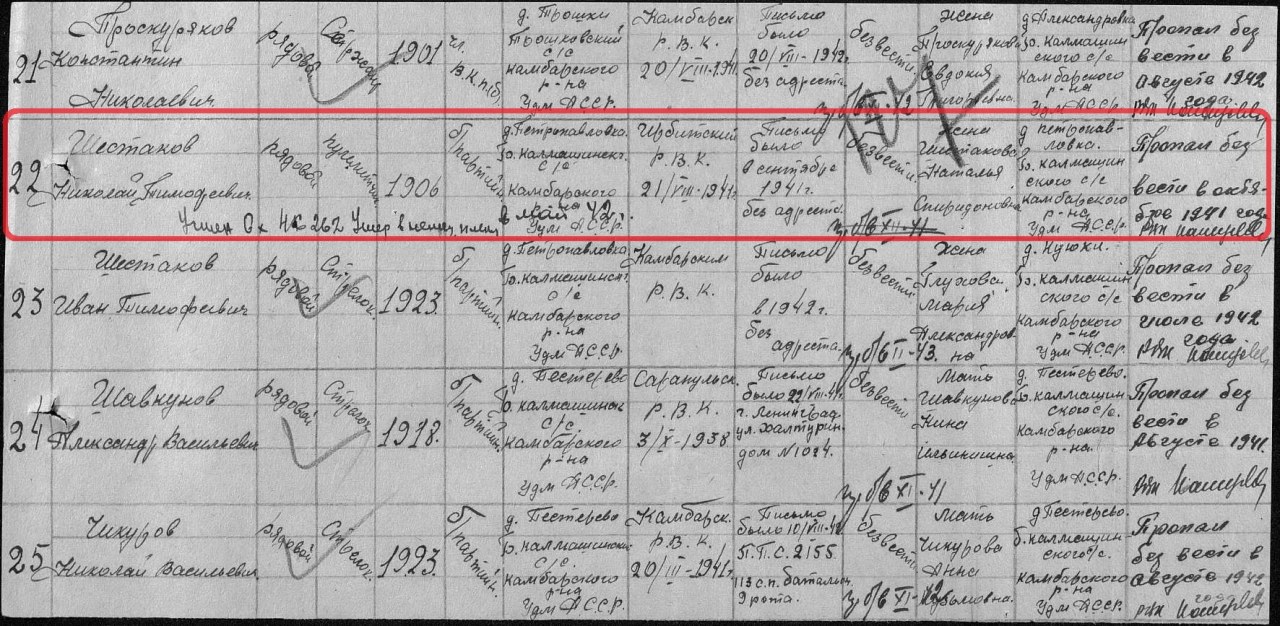 21
Проскуряков
Константин
Николаевич
рядовой
1901
чл.
В.К.П(б)
д. Трошки
Трошковский
с/с
Камбарского
р-на
Удм АССР.
Камбарск.
Р.В.К.
20/VIII-1941
Письмо
было
20/VIII-1942
без адреста.
безвести
Жена
Проскурякова
Евдокия
Григорьевна.
д Александровка
Б. Калмашин
ского с/с
Камбарского
р-на
Удм АССР.
Пропал без
вести в
Августе 1942
года
22
Шестаков
Николай Тимофеевич.
рядовой
1906
б/партий.
д. Петропавловка.
Б. Калмашинск.
с/с
Камбарского
р-на
Удм АССР.
Ирбитский
Р.В.К.
21/VIII-1941г
Письмо
было
в сентябре
1941г.
без адреста.
безвести.
пр б/в XII-41
Жена
Шестакова
Наталья
Спиридоновна
д петропав-
ловка.
Б. калмашин
ского с/с
Камбарского
р-на
Удм АССР.
Пропал без
вести в октя-
бре 1941 года
в май 42г.
23
Шестаков
Иван Тимофеевич
рядовой
Стрелок.
1923.
б/партийн.
д. Петропавловка
Б. Калмашинск.
с/с
Камбарского
р-на
Удм АССР.
Камбарским
Р.В.К.
Письмо
было
в 1942г.
без
адреста.
безвести.
пр б/в II-43.
Жена
Глухова
Мария
Александров-
на
Б. Калмашин
ского с/с
Камбарского
р-на
Удм АССР.
Пропал без
вести в
июле 1942
года
24
Шавкунов
Александр Васильевич
рядовой
Стрелок
1918.
б/партийн.
д. Пестерево
Б. калмашинск
с/с.
Камбарского
р-на
Удм АССР.
Сарапульск.
Р.В.К.
3/X-1938
Письмо
г. Ленинград
ул. Халтурин.
дом №
безвести
пр б/в XI-41
Мать
Шавкунова
Нина
Ильинишна.
д. Пестерево.
Б. калмашин
ского с/с.
Камбарского
р-на.
Удм АССР.
Пропал без
вести в
Августе 1941.
25
Чикуров
Николай Васильевич.
рядовой
Стрелок.
1923.
б/партийн.
д. Пестерево
Б. калмашинск
с/с.
Камбарского
р-на
Удм АССР.
Камбарск.
Р.В.К.
20/III-1941г
Письмо
было 10/VIII-42
П.П.С. 2155
113 с.п. батальон.
9 рота.
безвести
Мать
Чикурова
Анна
д Пестерево.
б. калмашин
ского с/с.
Камбарского
р-на
Удм АССР.
Пропал
без вести в
Августе 1942
года